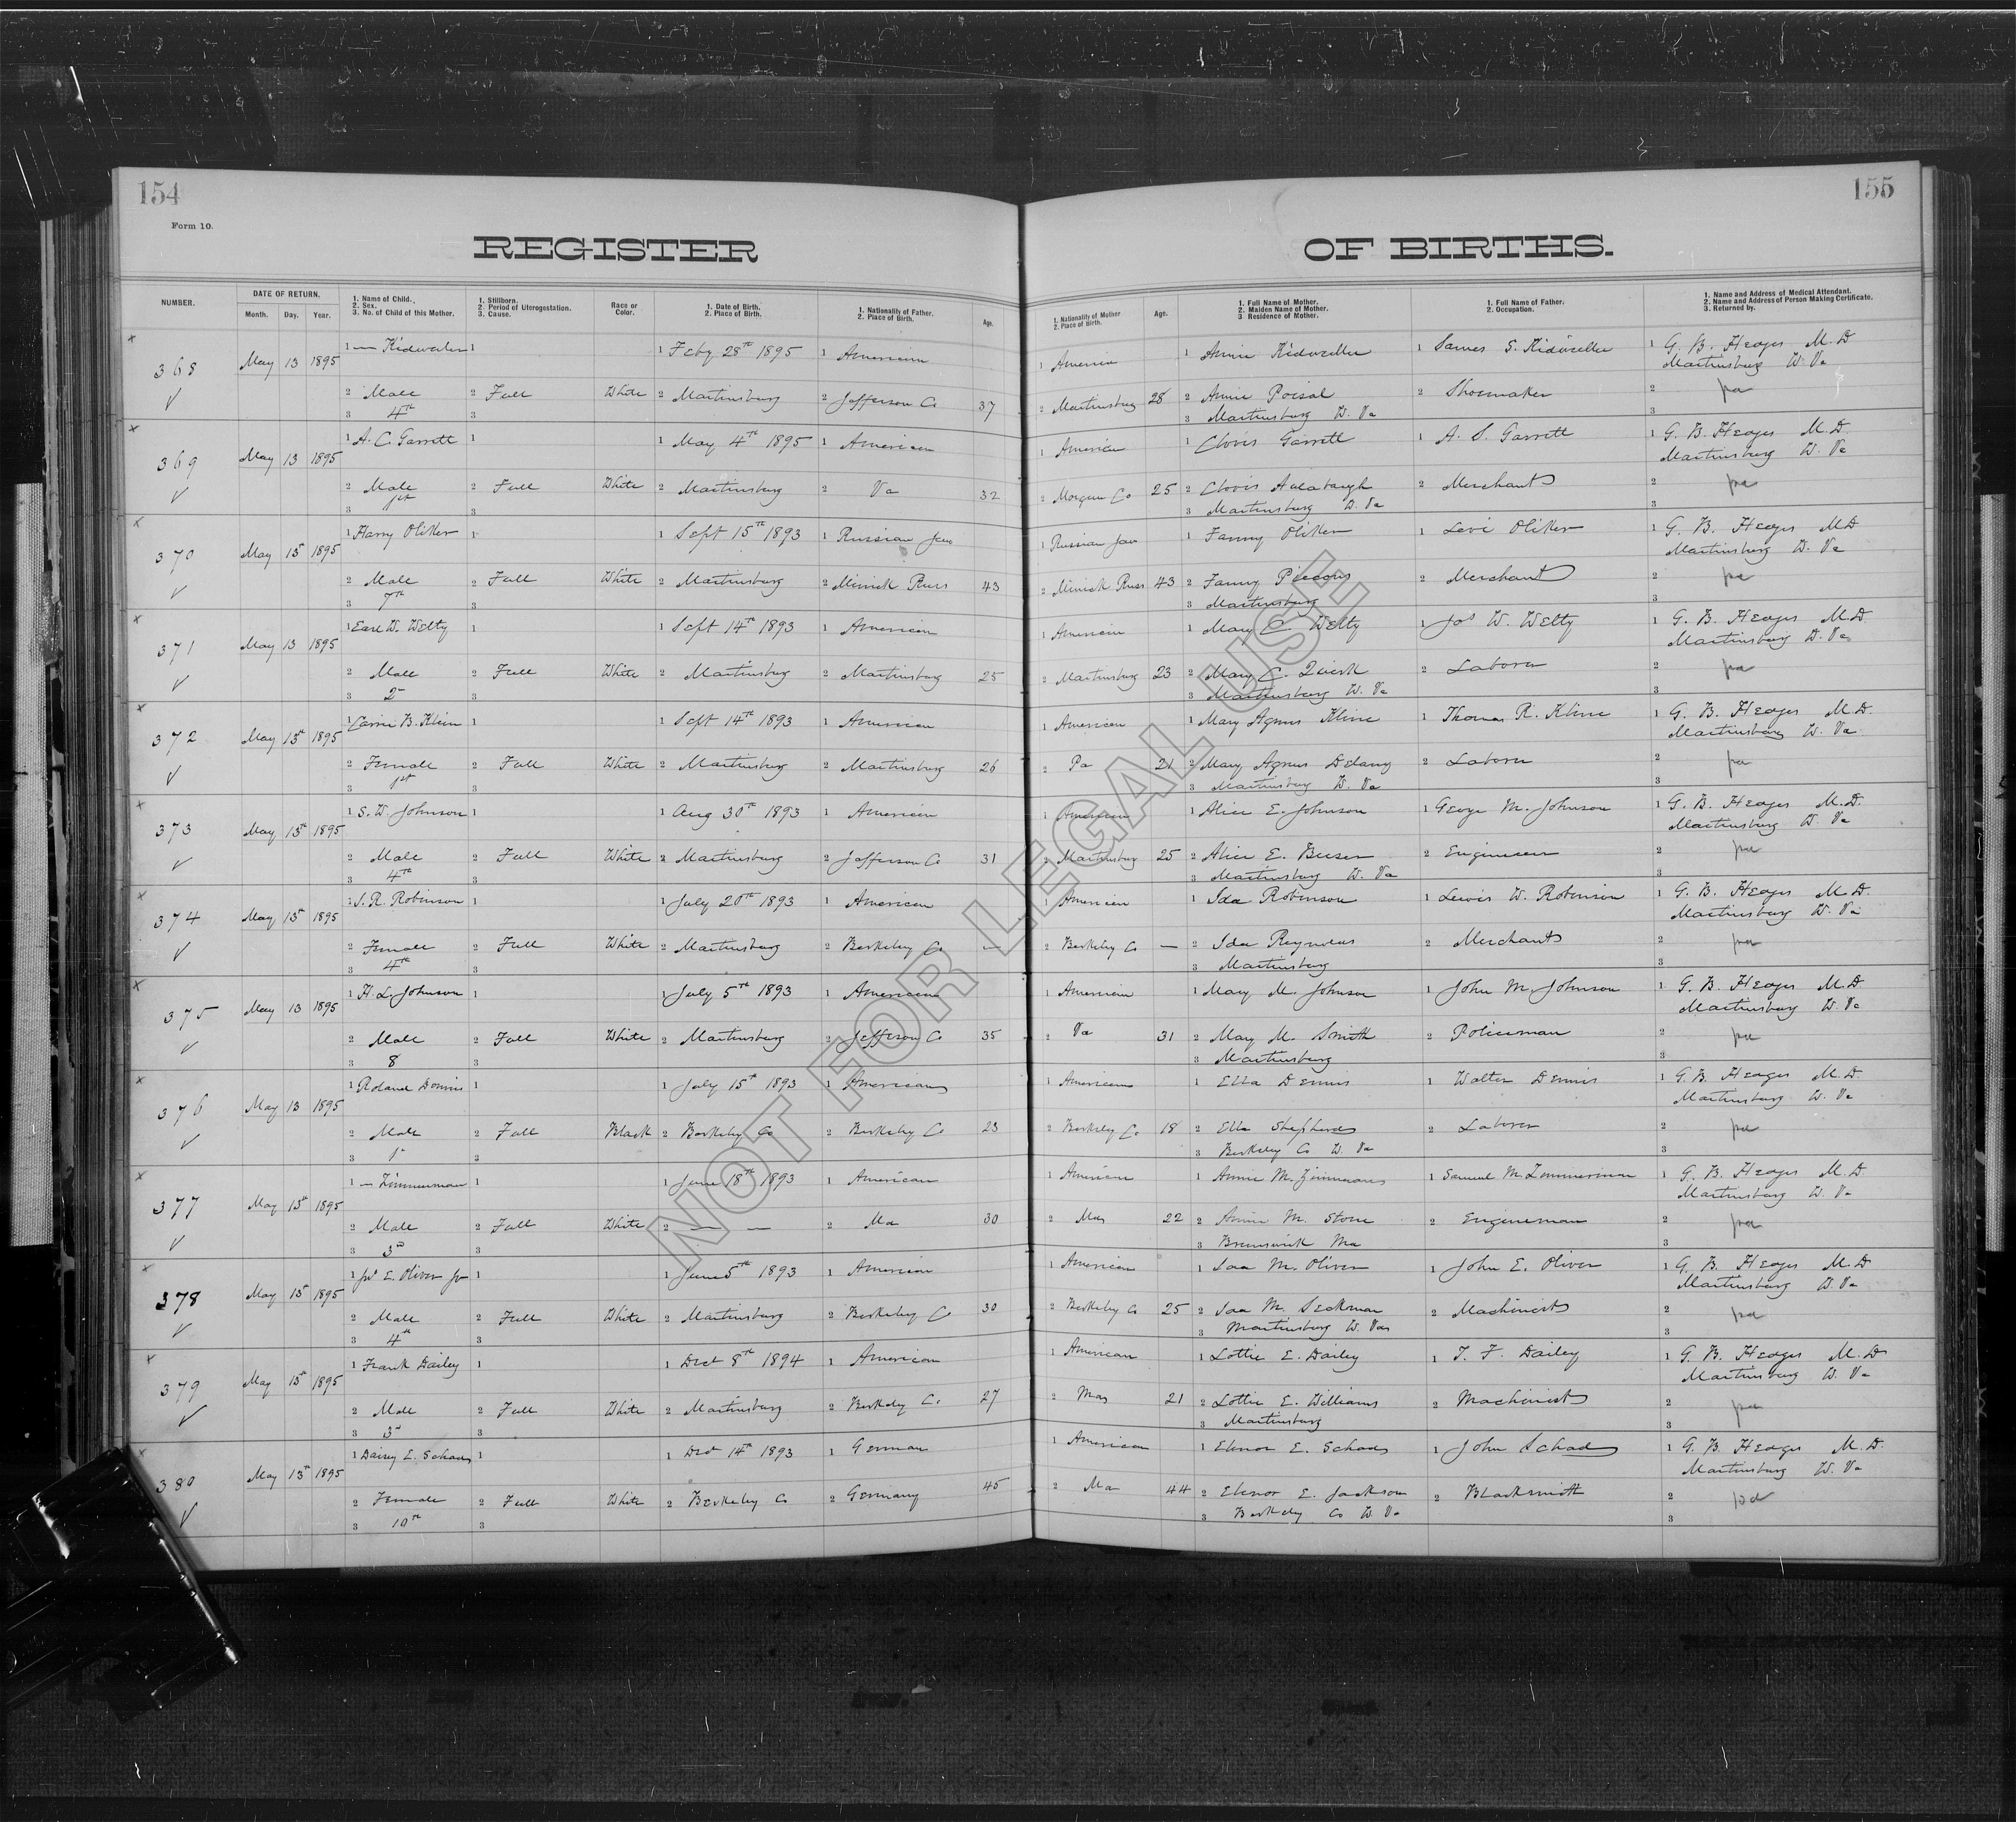 154
155
Form 10.
REGISTER OF BIRTHS.
NUMBER.
DATE OF RETURN.
Month. Day. Year.
1. Name of Child.
2. Sex.
3. No. of Child of this Mother.
1. Stillborn.
2. Period of Uterogestation.
3. Cause.
Race or
Color.
1. Date of Birth.
2. Place of Birth.
1. Nationality of Father.
2. Place of Birth.
Age.
1. Nationality of Mother
2. Place of Birth.
Age.
1. Full Name of Mother.
2. Maiden Name of Mother.
3 Residence of Mother.
1. Full Name of Father.
2. Occupation.
1. Name and Address of Medical Attendant.
2. Name and Address of Person Making Certificate.
3. Returned by.
368 May 13 1895 1 — Kidwiler 1 1 Feby 28th 1895 1 American 1 American 1 Annie Kidwiler 1 James S. Kidwiler 1 G. B. Hedges M. D
Martinsburg W. Va
2 Male 2 Full White 2 Martinsburg 2 Jefferson Co 37 2 Martinsburg 28 2 Annie Poisal 2 Shoemaker 2
3 4th 3 3 Martinsburg W. Va 3
369 May 13 1895 1 A. C. Garrett 1 1 May 4th 1895 1 American 1 American 1 Clovis Garrett 1 A. S. Garrett 1 G. B. Hedges M. D.
Martinsburg W. Va
2 Male 2 Full White 2 Martinsburg 2 Va 32 2 Morgan Co 25 2 Clovis 2 Merchant 2
3 1st 3 Martinsburg W. Va 3
370 May 13 1895 1 Harry Oliker 1 1 Sept 15th 1893 1 Russian Jew 1 Russian Jew 1 Fanny Oliker 1 Levi Oliker 1 G. B. Hedges M D
Martinsburg W. Va
2 Male 2 Full White 2 Martinsburg 2 Minick Russ 43 2 Minick Russ 43 2 Fanny 2 Merchant 2
3 7th 3 3 Martinsburg 3
371 May 13 1895 1 Earl W. Welty 1 1 Sept 14th 1893 1 American 1 American 1 Mary C. Welty 1 Jos W. Welty 1 G. B. Hedges M. D.
Martinsburg W. Va
2 Male 2 Full White 2 Martinsburg 2 Martinsburg 25 2 Martinsburg 23 2 Mary C. Quirk 2 Laborer 2
3 2 3 3 Martinsburg W. Va 3
372 May 13th 1895 1 Carrie B. Klein 1 1 Sept 14th 1893 1 American 1 American 1 Mary Agnus Kline 1 Thomas R. Kline 1 G. B. Hedges M. D.
Martinsburg W. Va
2 Female 2 Full White 2 Martinsburg 2 Martinsburg 26 2 Pa 21 2 Mary Agnus Delany 2 Laborer 2
3 1st 3 3 Martinsburg W. Va 3
373 May 13th 1895 1 S. W. Johnson 1 1 Aug 30th 1893 1 American 1 American 1 Alice E. Johnson 1 George M. Johnson 1 G. B. Hedges M. D.
Martinsburg W. Va
2 Male 2 Full White 2 Martinsburg 2 Jefferson Co 31 2 Martinsburg 25 2 Alice E. 2 Engineer 2
3 4th 3 3 Martinsburg W. Va 3
374 May 13th 1895 1 S. R. Robinson 1 1 July 20th 1893 1 American 1 American 1 Ida Robinson 1 Lewis W. Robinson 1 G. B. Hedges M. D.
Martinsburg W. Va
2 Female 2 Full White 2 Martinsburg 2 Berkeley Co — 2 Berkeley Co — 2 Ida Reynolds 2 Merchant 2
3 4th 3 3 Martinsburg 3
375 May 13 1895 1 H. L. Johnson 1 1 July 5th 1893 1 American 1 American 1 Mary M. Johnson 1 John M. Johnson 1 G. B. Hedges M. D
Martinsburg W. Va
2 Male 2 Full White 2 Martinsburg 2 Jefferson Co 35 2 Va 31 2 Mary M. Smith 2 Policeman 2
3 8 3 3 Martinsburg 3
376 May 13 1895 1 Roland Dennis 1 1 July 15th 1893 1 American 1 American 1 Ella Dennis 1 Walter Dennis 1 G. B. Hedges M. D.
Martinsburg W. Va
2 Male 2 Full Black 2 Berkeley Co 2 Berkeley Co 23 2 Berkeley Co 18 2 Ella Shepherd 2 Laborer 2
3 1 3 3 Berkeley Co W. Va 3
377 May 13th 1895 1 — Zimmerman 1 1 June 18th 1893 1 American 1 American 1 Annie M. Zimmerman 1 Samuel M. Zimmerman 1 G. B. Hedges M. D.
Martinsburg W. Va
2 Male 2 Full White 2 — — 2 Md 30 2 Md 22 2 Annie M. Stone 2 Engineman 2
3 3d 3 3 Brunswick Md 3
378 May 13th 1895 1 Jno E. Oliver Jr 1 1 June 5th 1893 1 American 1 American 1 Ida M. Oliver 1 John E. Oliver 1 G. B. Hedges M. D
Martinsburg W. Va
2 Male 2 Full White 2 Martinsburg 2 Berkeley Co 30 2 Berkeley Co 25 2 Ida M. Seckman 2 Machinist 2
3 4th 3 3 Martinsburg W. Va 3
379 May 13th 1895 1 Frank Dailey 1 1 Dect 8th 1894 1 American 1 American 1 Lottie E. Dailey 1 T. F. Dailey 1 G. B. Hedges M. D
Martinsburg W. Va
2 Male 2 Full White 2 Martinsburg 2 Berkeley Co 27 2 Mas 21 2 Lottie E. Williams 2 Machinist 2
3 3d 3 3 Martinsburg 3
380 May 13th 1895 1 Daisy E. Schad 1 1 Dect 14th 1893 1 German 1 American 1 Elenor E. Schad 1 John Schad 1 G. B. Hedges M. D.
Martinsburg W. Va
2 Female 2 Full White 2 Berkeley Co 2 Germany 45 2 Md 44 2 Elenor E. Jackson 2 Blacksmith 2
3 10th 3 3 Berkeley Co W. Va 3
NOT FOR LEGAL USE